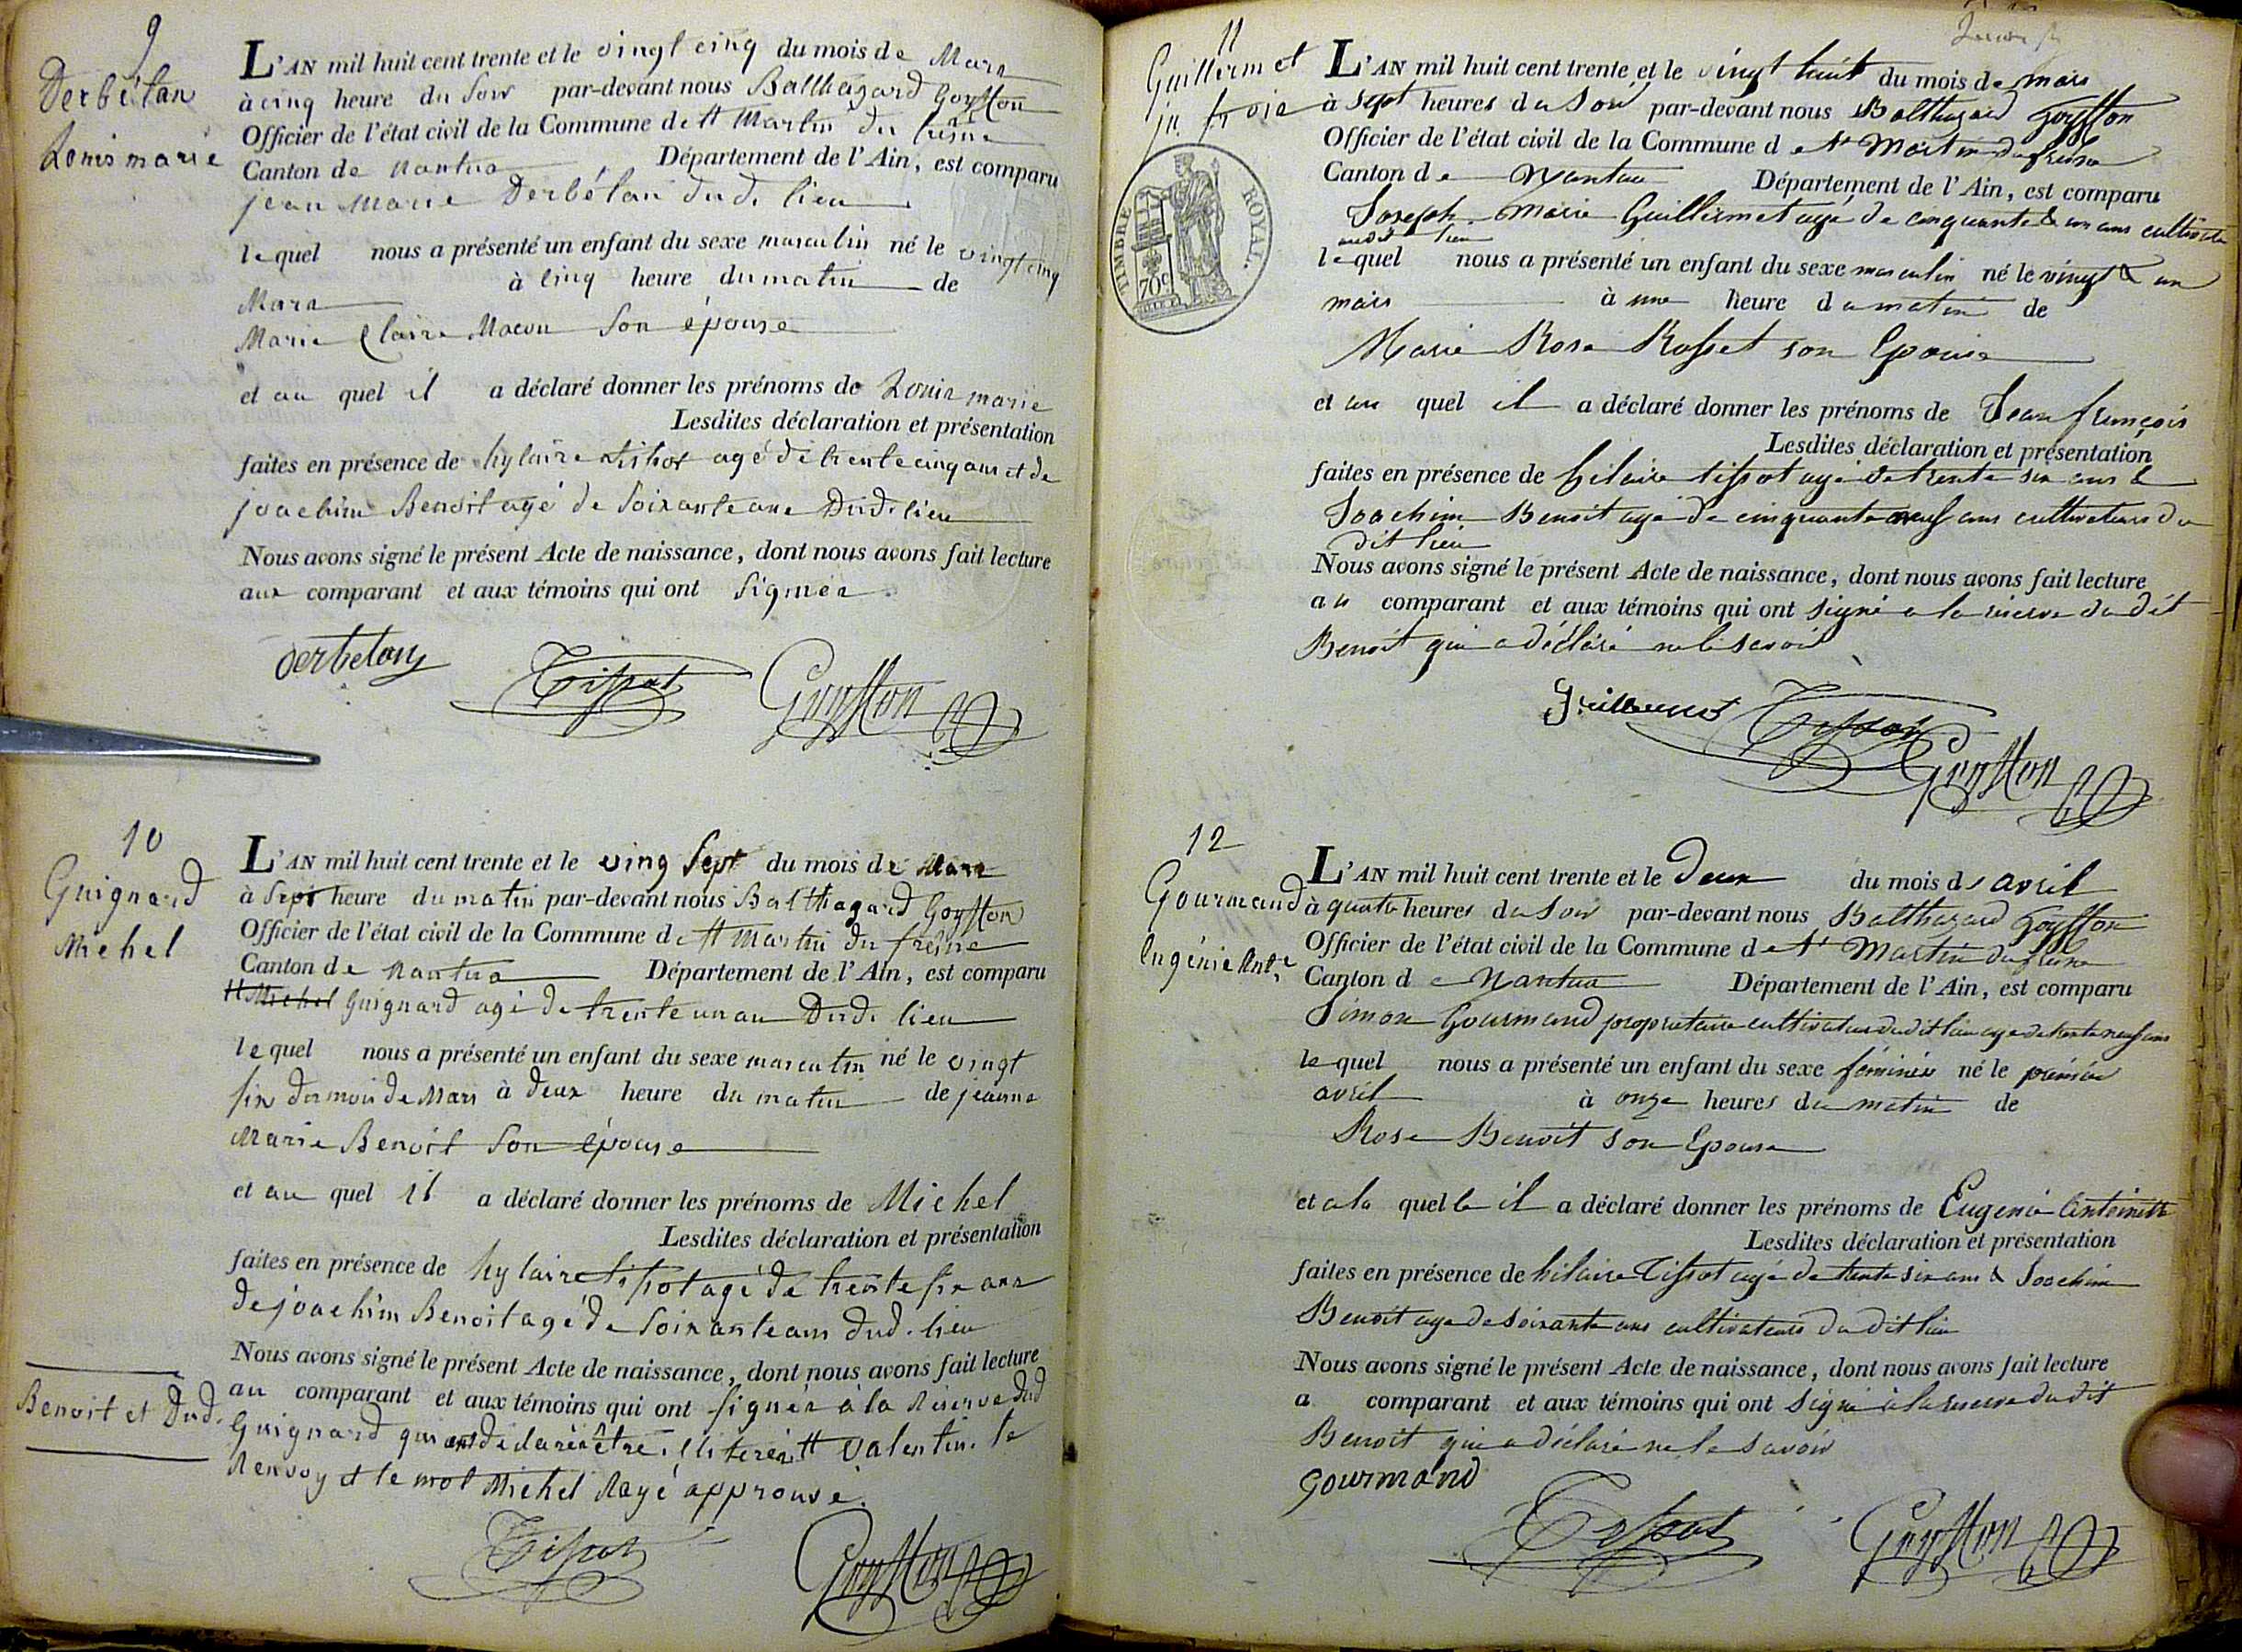 9
Derbétan
Louis marie
L'AN mil huit cent trente et le vingt cinq du mois de Mars
à cinq heure du soir par-devant nous Balthazard Goyffon
Officier de l'état civil de la Commune de St Martin du fresne
Canton de Nantua Département de l'Ain, est comparu
jean Marie Derbétan dud. lieu
lequel nous a présenté un enfant du sexe masculin né le vingt cinq
Mars à cinq heure du matin de
Marie Claire Macon son épouse
et au quel il a déclaré donner les prénoms de Louis marie
Lesdites déclaration et présentation
faites en présence de hylaire tissot agé de trente cinq ans et de
joachim Benoit agé de soixante ans Dud. lieu
Nous avons signé le présent Acte de naissance, dont nous avons fait lecture
aux comparant et aux témoins qui ont signés
Derbetan
Tissot Goyffon
10
Guignard
Michel
L'AN mil huit cent trente et le ving sept du mois de Mars
à sept heure du matin par-devant nous Balthazard Goyffon
Officier de l'état civil de la Commune de St Martin du fresne
Canton de Nantua Département de l'Ain, est comparu
Michel Guignard agé de trente un an Dud. lieu
lequel nous a présenté un enfant du sexe masculin né le vingt
six du mois de Mars à deux heure du matin de jeanne
Marie Benoit son épouse
et au quel il a déclaré donner les prénoms de Michel
Lesdites déclaration et présentation
faites en présence de hylaire tissot agé de trente six ans
de joachim Benoit agé de soixante ans dud. lieu
Nous avons signé le présent Acte de naissance, dont nous avons fait lecture
au comparant et aux témoins qui ont signés à la Réserve dud
Benoit et Dud.
Guignard qui ont déclaré être illiterés Valentin. le
Renvoy et le mot Michel Rayé approuvé.
Tissot Goyffon
11
Guillermet
jn frois
TIMBRE ROYAL.
70c
L'AN mil huit cent trente et le vingt huit du mois de mars
à sept heures du soir par-devant nous Balthazard Goyffon
Officier de l'état civil de la Commune de St Martin du fresne
Canton de Nantua Département de l'Ain, est comparu
Joseph Marie Guillermet agé de cinquante & un ans cultivateur
audit lieu
lequel nous a présenté un enfant du sexe masculin né le vingt & un
mars à une heure du matin de
Marie Rose Rosset son Epouse
et au quel il a déclaré donner les prénoms de Jean françois
Lesdites déclaration et présentation
faites en présence de hilaire tissot agé de trente six ans &
Joachim Benoit agé de cinquante neuf ans cultivateurs du
dit lieu
Nous avons signé le présent Acte de naissance, dont nous avons fait lecture
au comparant et aux témoins qui ont signé a la reserve du dit
Benoit qui a déclaré ne le savoir
Guillermet Tissot
Goyffon
12
Gourmand
Eugénie Antte
L'AN mil huit cent trente et le Deux du mois d'avril
à quatre heures du soir par-devant nous Balthazard Goyffon
Officier de l'état civil de la Commune de St Martin du fresne
Canton de Nantua Département de l'Ain, est comparu
Simon Gourmand propriétaire cultivateur dudit lieu age de trente neuf ans
lequel nous a présenté un enfant du sexe féminin né le premier
avril à onze heures du matin de
Rose Benoit son Epouse
et a la quelle il a déclaré donner les prénoms de Eugenie Antoinette
Lesdites déclaration et présentation
faites en présence de hilaire Tissot agé de trente six ans & Joachim
Benoit age de soixante ans cultivateurs du dit lieu
Nous avons signé le présent Acte de naissance, dont nous avons fait lecture
a comparant et aux témoins qui ont signé à la reserve du dit
Benoit qui a déclaré ne le savoir
gourmand
Tissot Goyffon